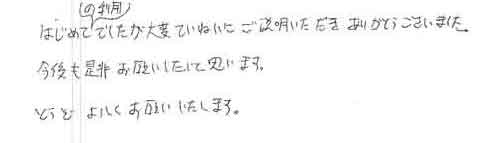 はじめての利用でしたが大変ていねいにご説明いただきありがとうございました。
今後も是非お願いしたいと思います。
どうぞよろしくお願いいたします。